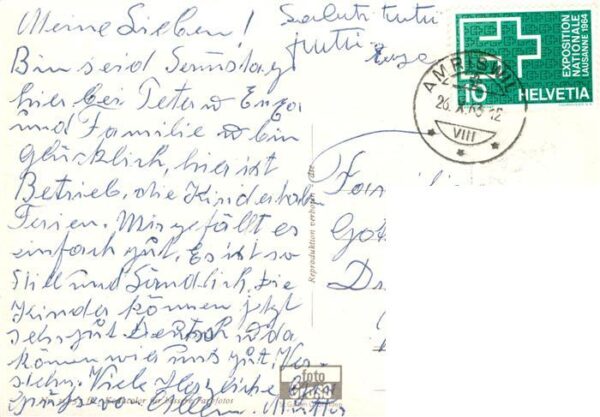 Meine Lieben!
Bin seid Samstag
hier bei Peter u Enza
und Familie u bin
glücklich, hier ist
Betrieb, die Kinder haben
Ferien. Mir gefällt es
einfach gut. Es ist so
still und Ländlich. Die
Kinder können jetzt
sehr gut Deutsch u da
können wir uns gut. Ver-
stehn. Viele Herzliche
Grüsse von Allen. Mutter
Saluti tutti
tutti
Enza
AMRISWIL
26. X. 63-12
VIII
10
HELVETIA
EXPOSITION
NATIONALE
LAUSANNE 1964
Reproduktion verboten
Fa
foto